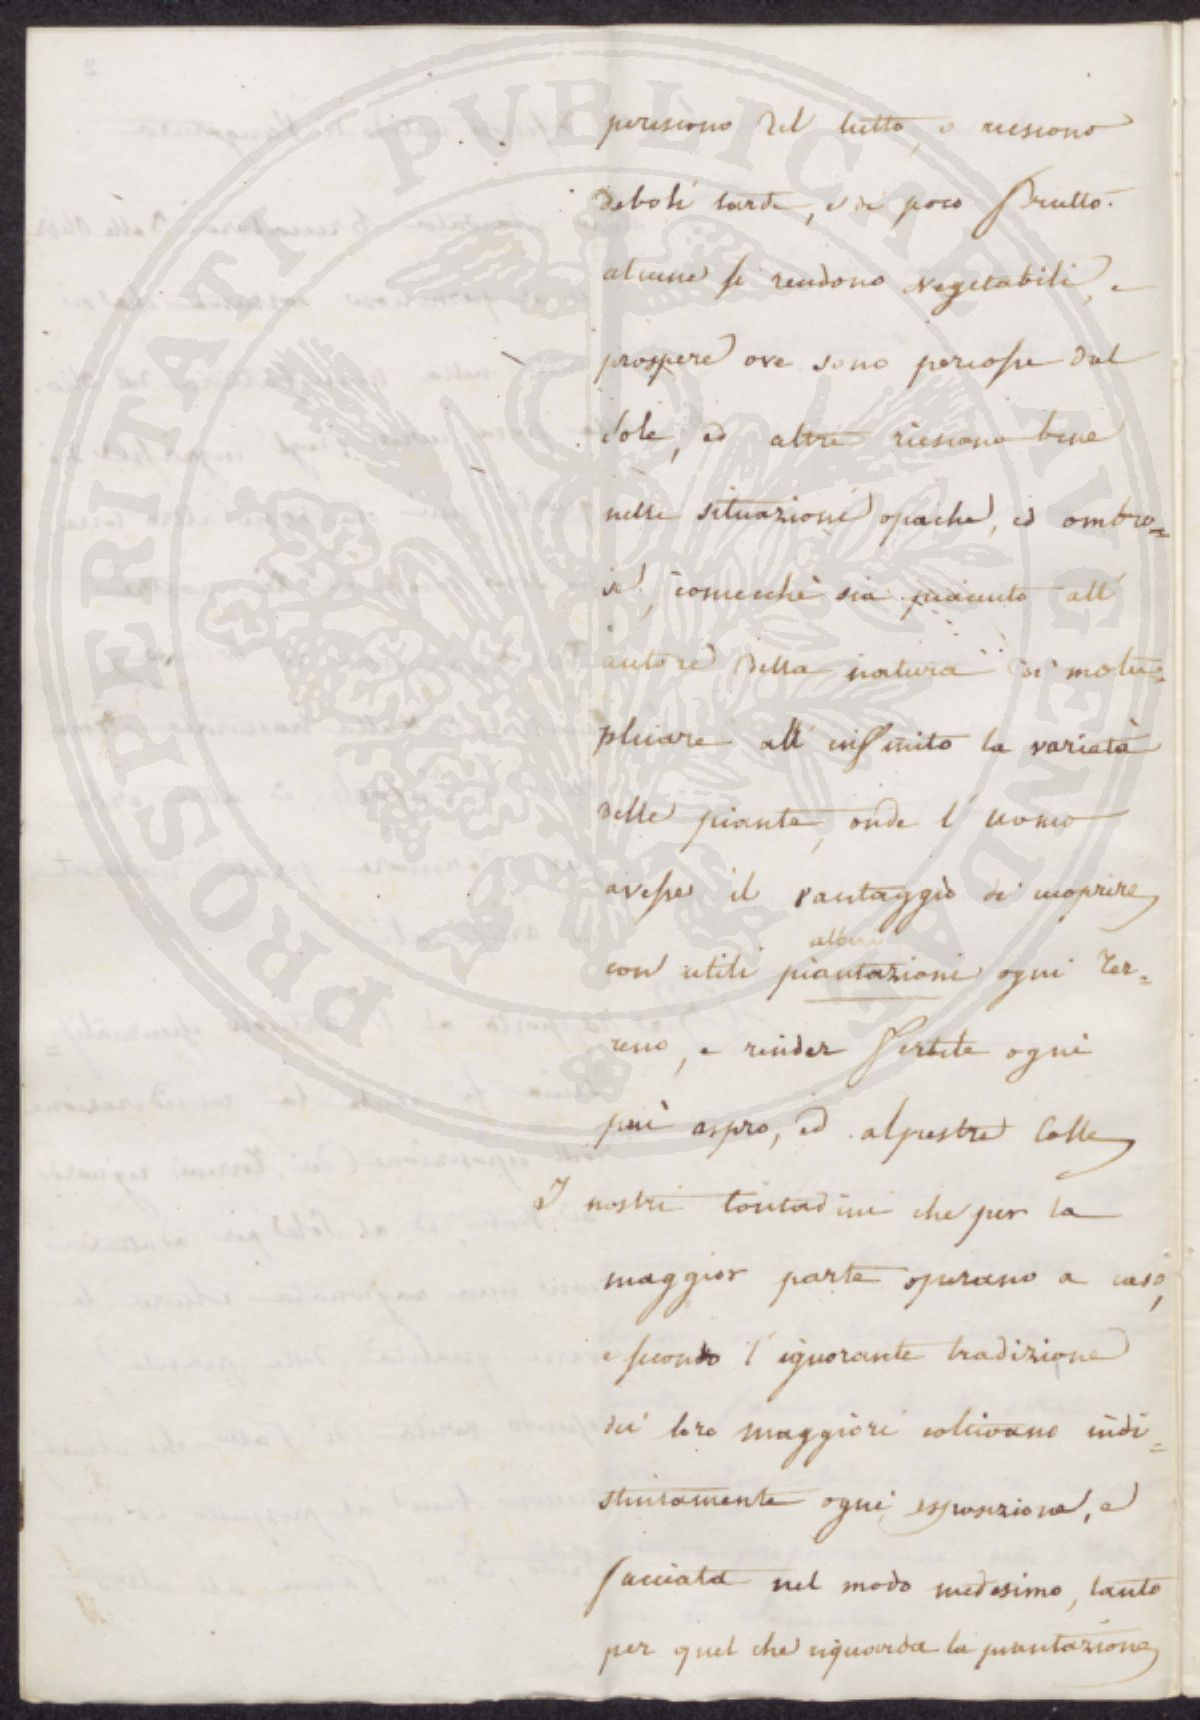 periscono del tutto, o riescono
deboli tarde, e di poco frutto.
alcune si rendono vegetabili, e
prospere ove sono percosse dal
sole, ed altre riescono bene
nelle situazioni opache, ed ombro=
se, comecchè sia piaciuto all'
autore della natura di molti=
plicare all'infinito la varietà
delle piante, onde l'uomo
avesse il vantaggio di ricoprire
alberi
con utili piantazioni ogni ter=
reno, e render fertile ogni
più aspro, ed alpestre Colle
I nostri Contadini che per la
maggior parte operano a caso,
e secondo l'ignorante tradizione
dei loro maggiori coltivano indi=
stintamente ogni esposizione, e
facciata nel modo medesimo, tanto
per quel che riguarda la piantazione
PROSPERITATI PUBLICAE AUGENDAE